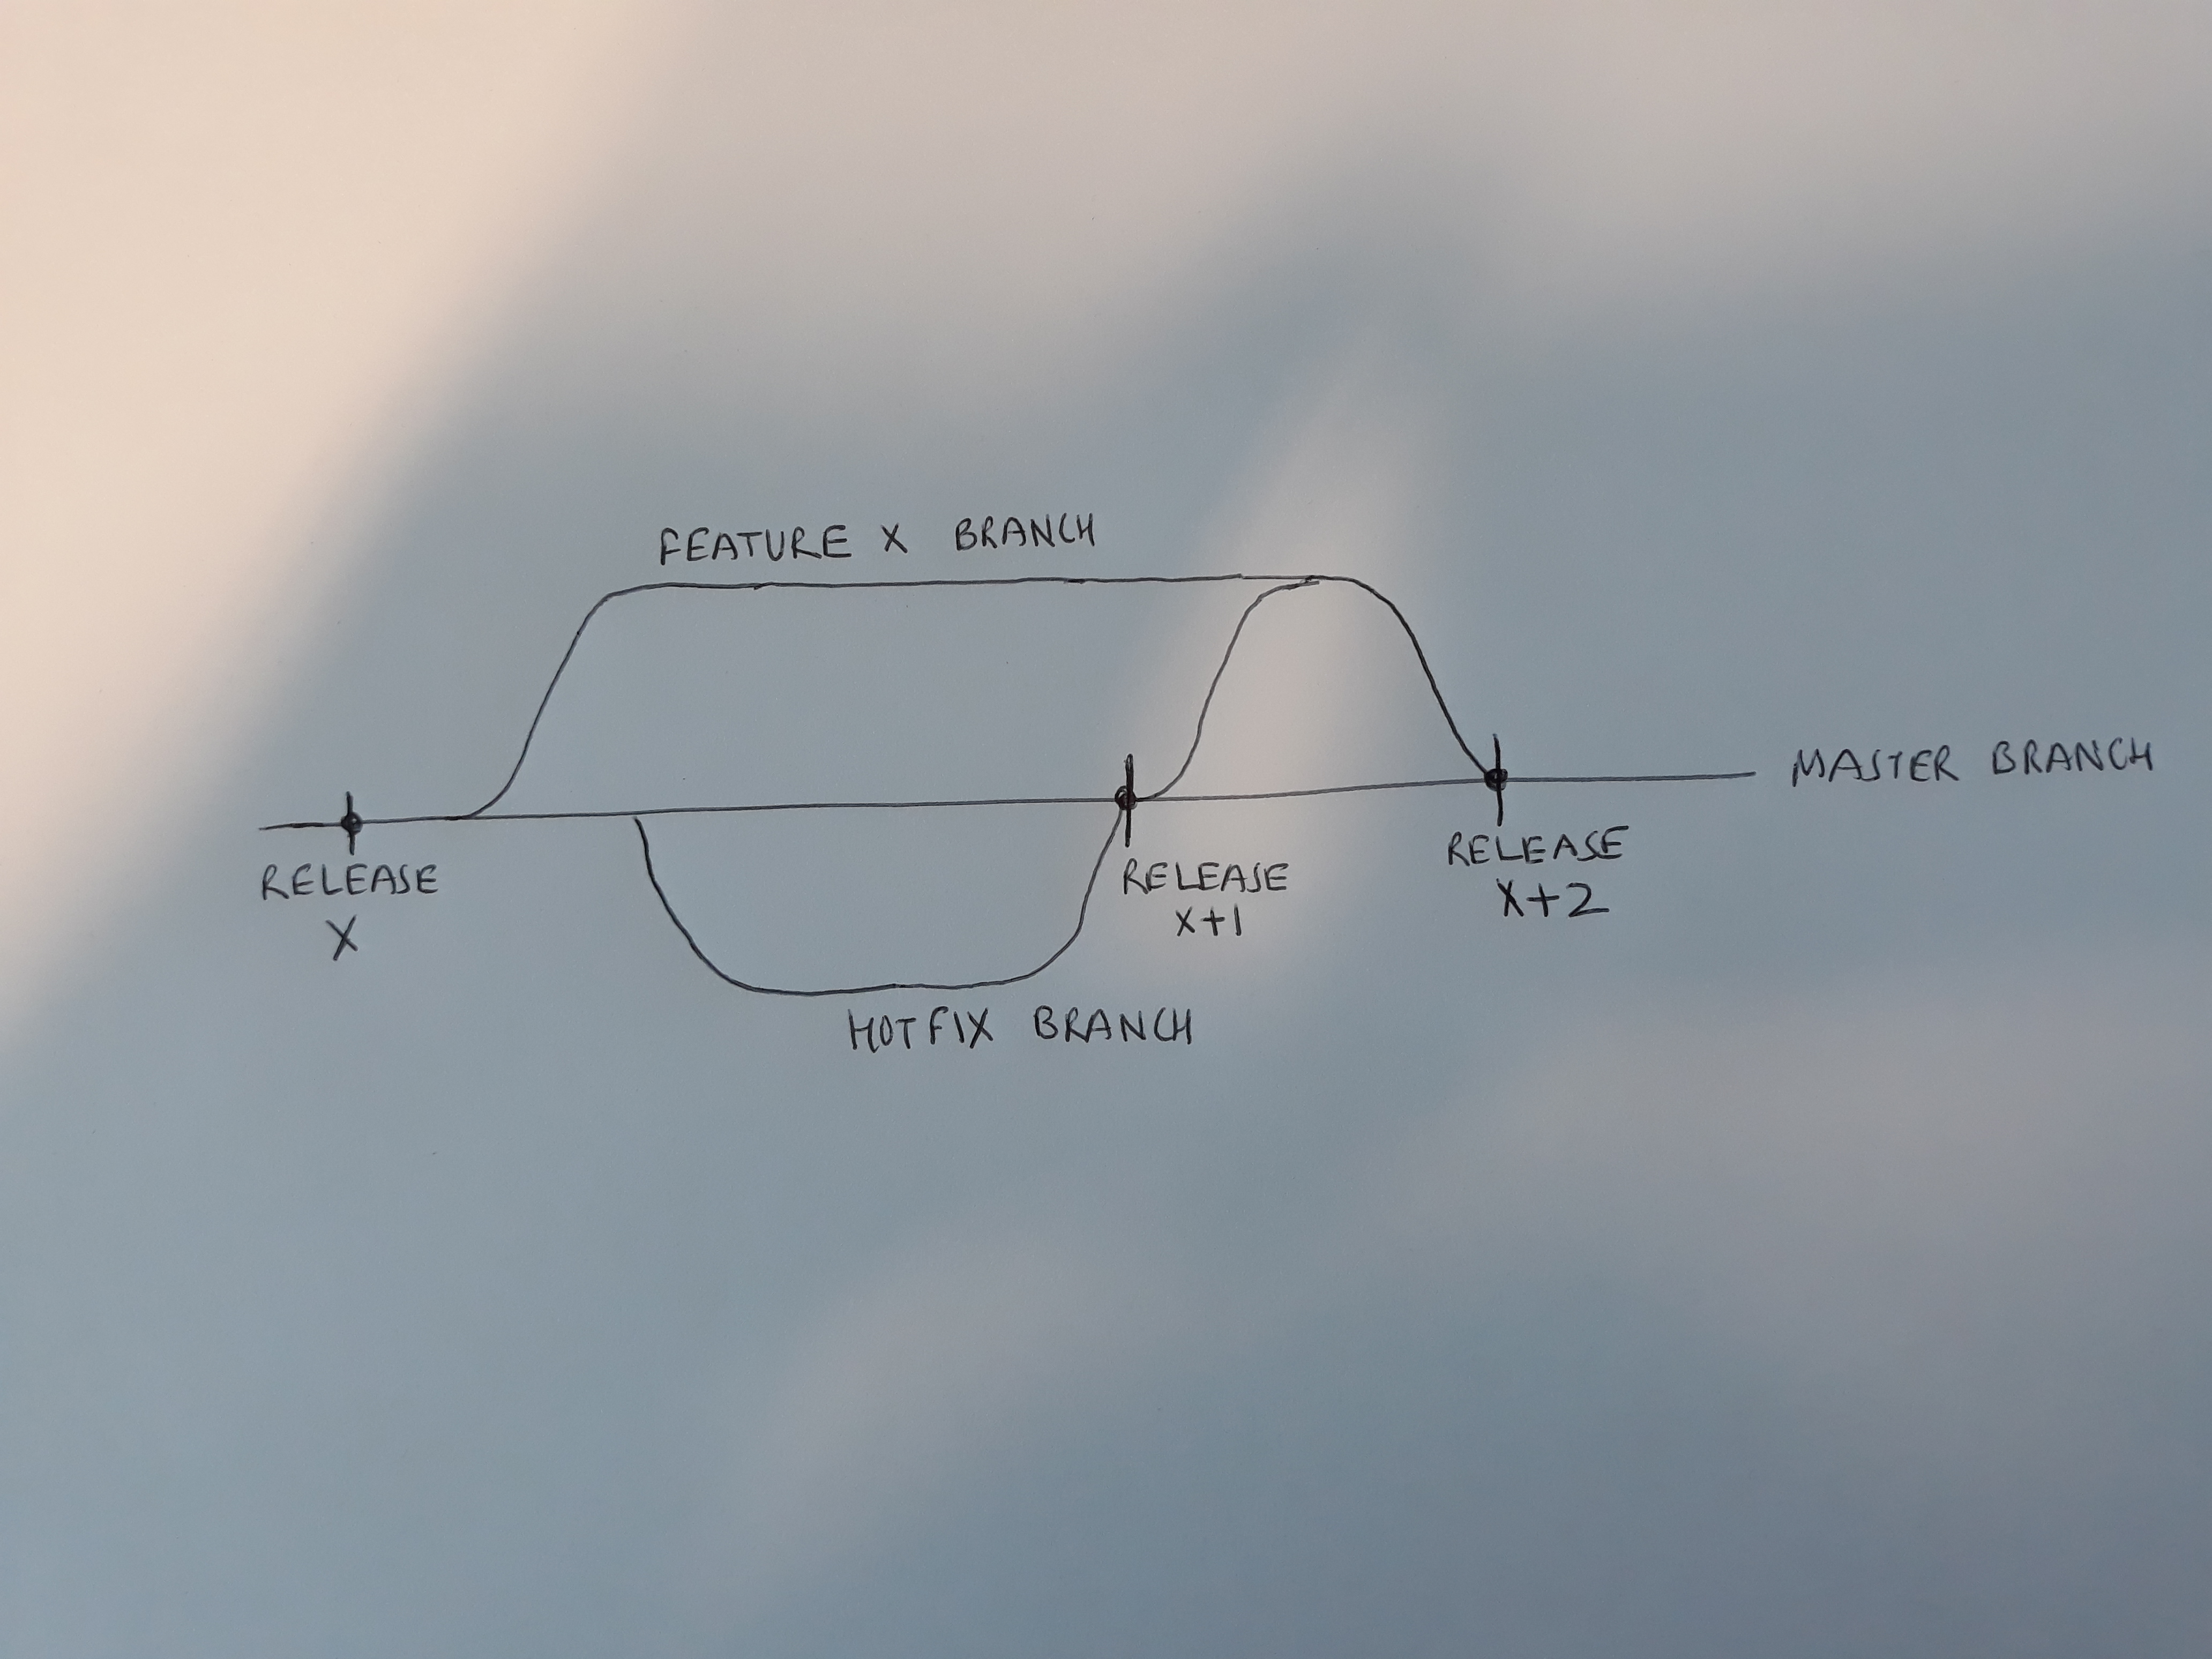 FEATURE X BRANCH
MASTER BRANCH
RELEASE
X
RELEASE
X+1
RELEASE
X+2
HOTFIX BRANCH